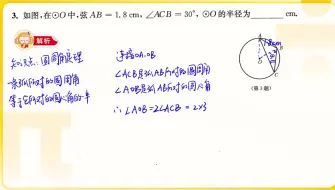 3. 如图,在⊙O中,弦AB=1.8 cm,∠ACB=30°,⊙O的半径为________cm.
解析
知识点:圆周角定理
一条弧所对的圆周角
等于它所对的圆心角的一半
连接OA、OB
∠ACB是弧AB所对的圆周角
∠AOB是弧AB所对的圆心角
∴∠AOB=2∠ACB = 2×3
1.8cm
A
B
O
C
(第3题)